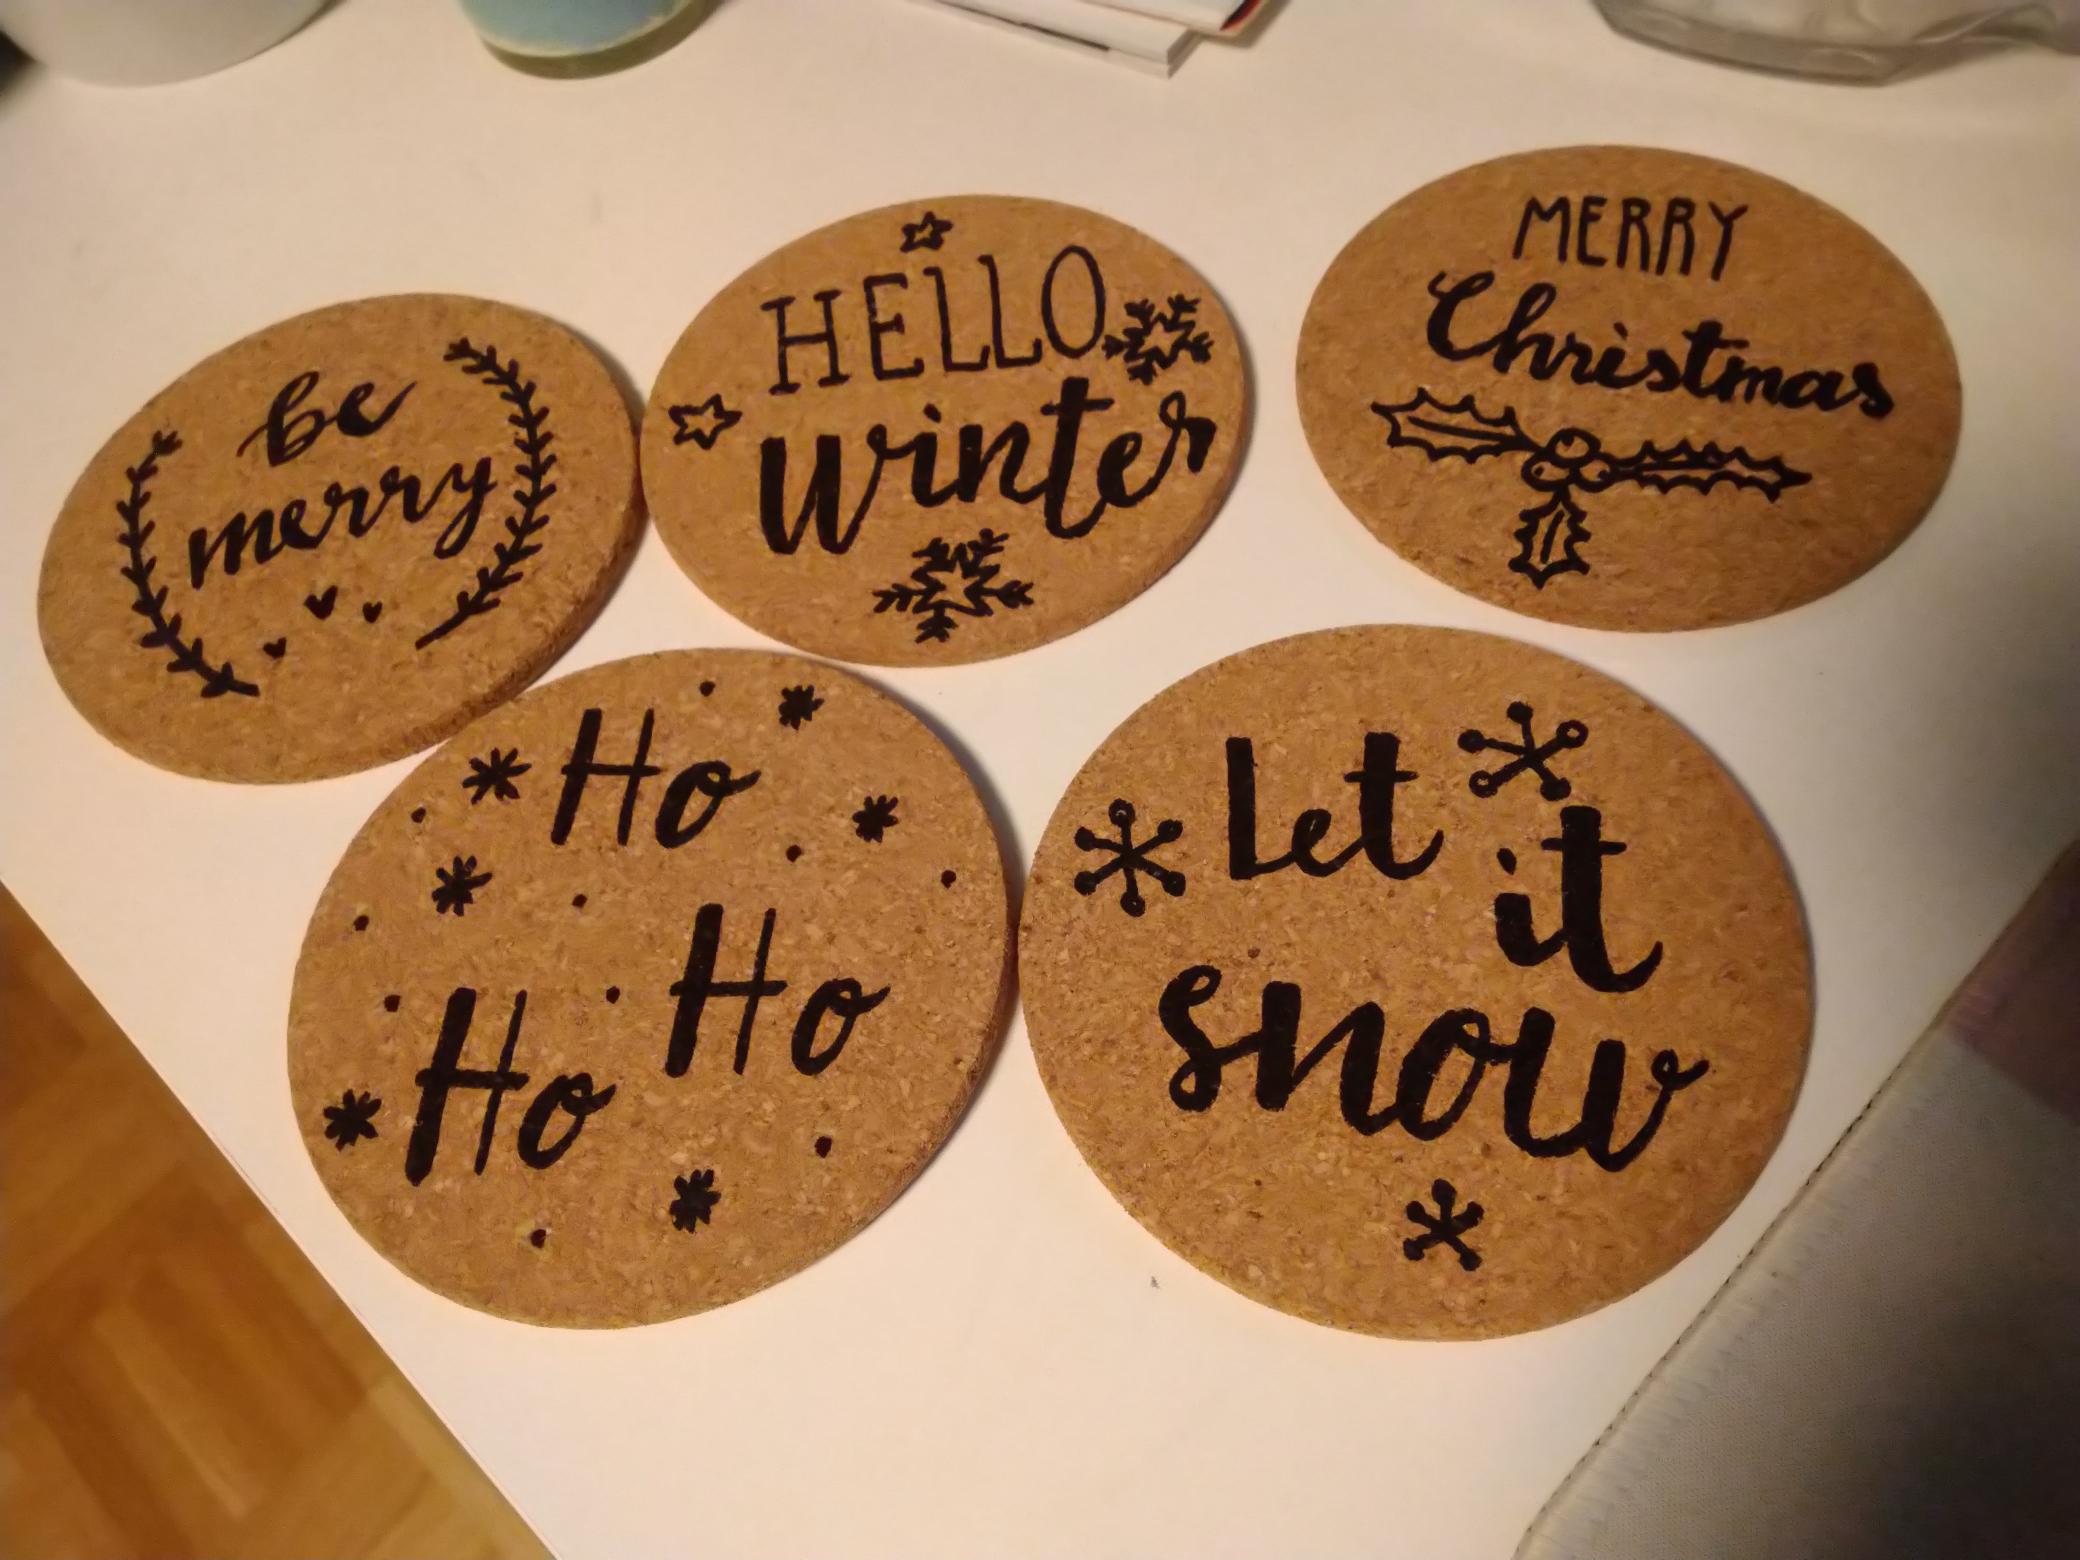 be
merry
HELLO
winter
MERRY
Christmas
Ho
Ho
Ho
Let
it
snow